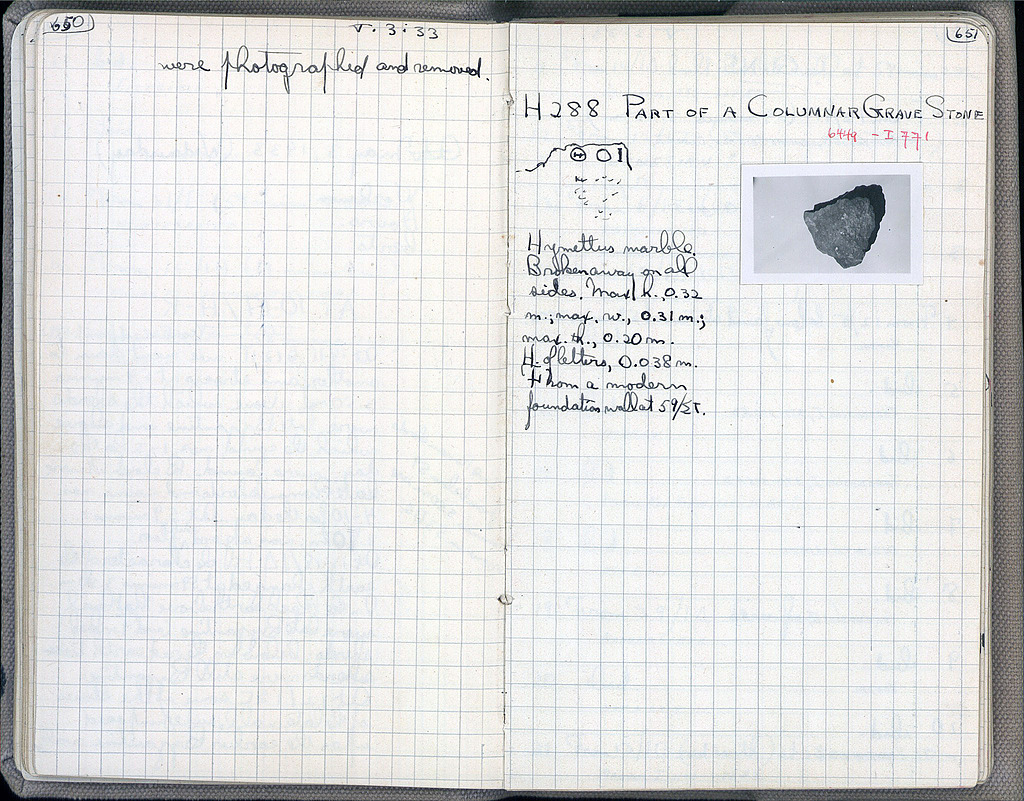 650
V. 3. 33
were photographed and removed.
651
H 288 PART OF A COLUMNAR GRAVE STONE
6449 - I 771
Θ Ο Ι
Hymettus marble.
Broken away on all
sides. Max. h., 0.32
m.; max. w., 0.31 m.;
max. th., 0.20 m.
H. of letters, 0.038 m.
From a modern
foundation wall at 59/ΣΤ.